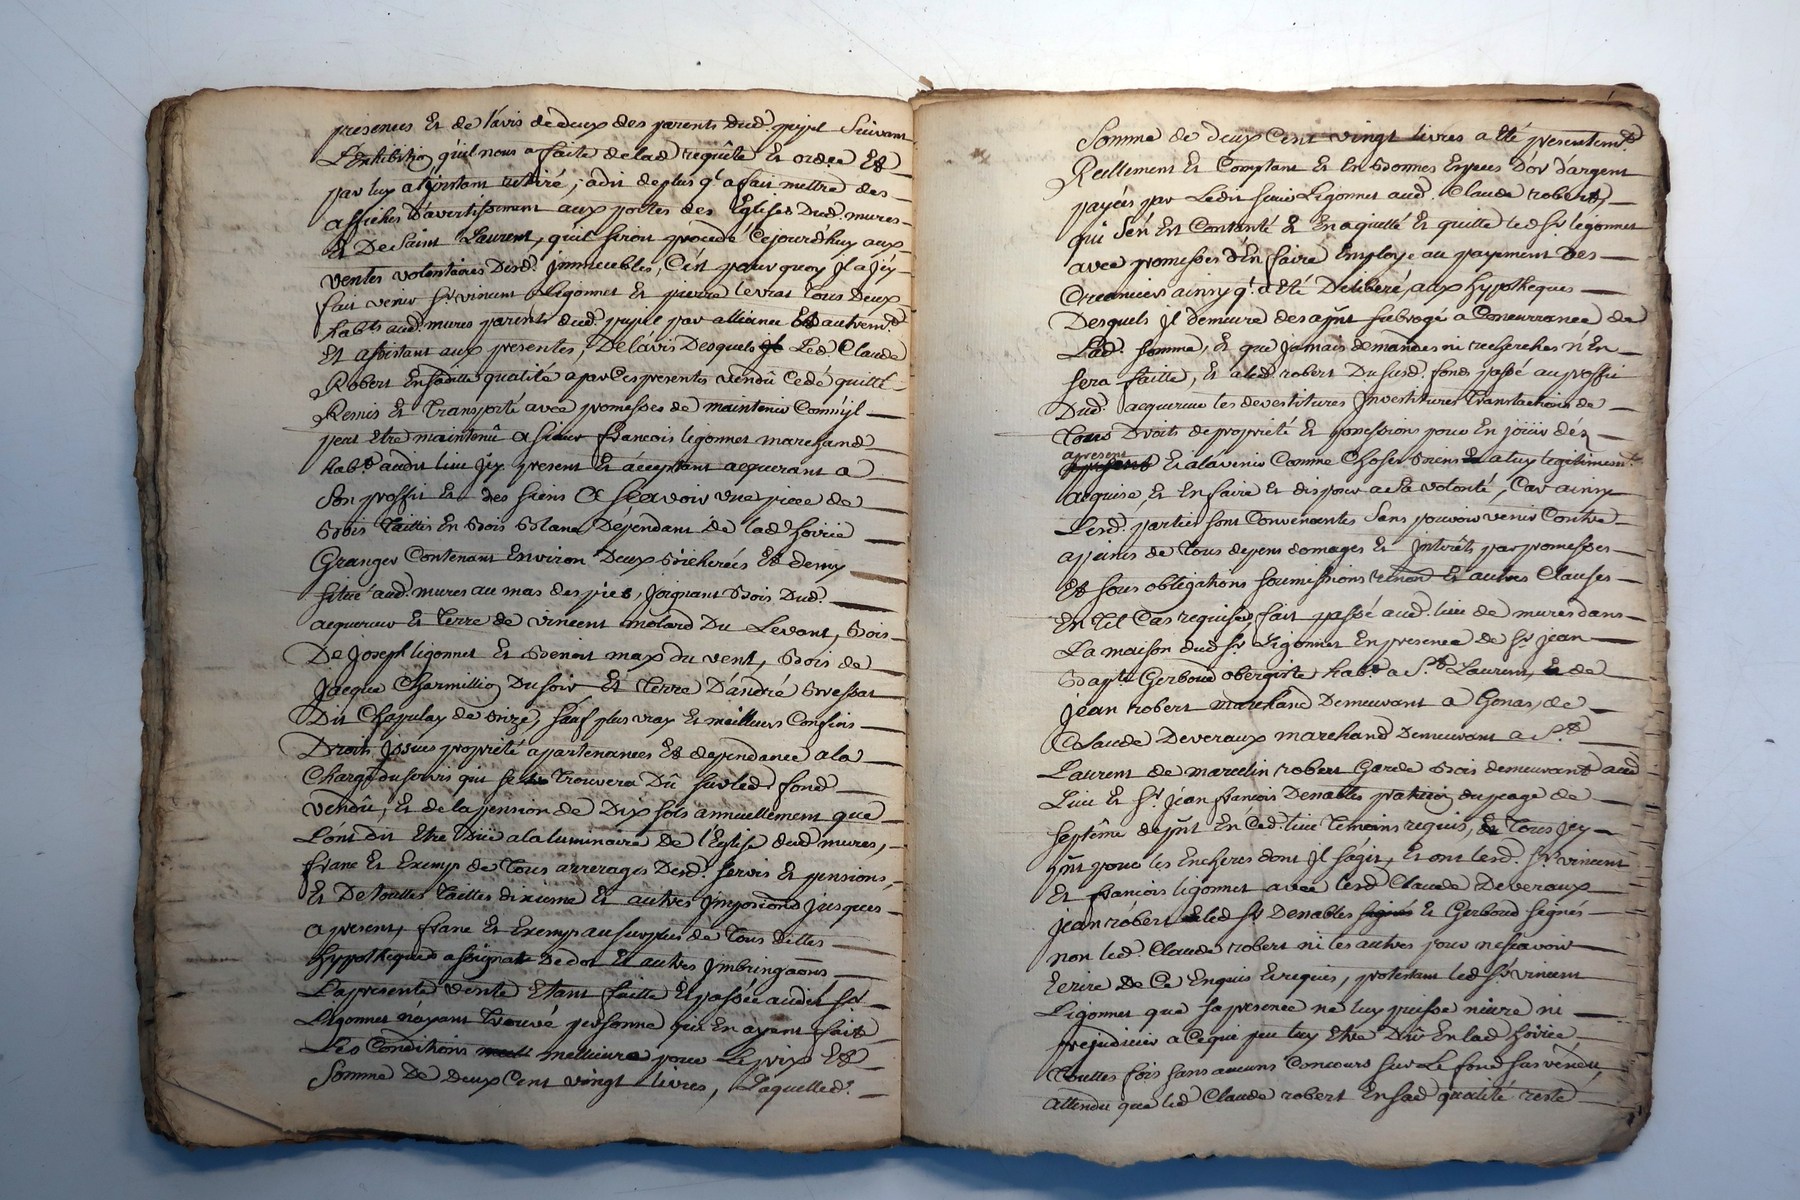 presences Et de l'avis de deux des parents dud. pupil Suivant
L'Exhibition qu'il nous a faite de lad. requête Et ordce Et
par luy a l'instant retiré, a dit de plus q.' a fait mettre des
affiches d'avertissement aux portes des Eglises Dud. mures
Et De Saint Laurent, qu'il seroit procedé Cejourd'huy aux
ventes volontaires Desd. Immeubles, C'est pourquoy Il a Jcy
fait venir Sr. vincent Ligonnet Et pierre levrat Tous Deux
hab.ts aud. mures parents dud. pupil par alliance Et autrem.t
Et assistant aux presentes, De l'avis Desquels Led. Claude
Robert En saditte qualité a par Ces presentes vendu Cedé quitté
Remis Et Transporté avec promesses de maintenir Comm'jl
peut Etre maintenû a sieur françois ligonnet marchand
hab.t audit lieu Jcy present Et acceptant acquerant a
Son proffit Et des siens A Scavoir vne piece de
Bois Taillis En Bois Blanc Dépendant de lad. hoirie
Granger Contenant Environ Deux Bicherées Et demy
située aud. mures au mas des pies, Joignant Bois Dud.
acquereur Et Terre de vincent molard Du Levant, Bois
De Joseph ligonnet Et Benoit max du vent, Bois de
Jacque Charmillion Du soir Et Terre D'andré Bressat
Dit Chapulay de Bize, Sauf plus vray Et meilleurs Confins
Droits Jssues propriété apartenances Et dependance a la
Charge du servis qui se Trouvera Dû sur led. fond
vendû, Et de la pension de Dix sols annuellement que
L'on dit Etre Düe a la luminaire De l'Eglise dud. mures,
franc Et Exemp de Tous arrerages Desd. servis Et pensions,
Et De touttes Tailles dixieme Et autres Jmpositions Jusques
a present, franc Et Exemp au surplus de Tous Dettes
hypotheques assignat De dot Et autres Jmbringaons
La presente vente Etant faitte Et passée audit Sr.
Ligonnet n'ayant Trouvé personne qui En ayent fait
Les Conditions meilleure pour Le prix Et
Somme De Deux Cent vingt livres, Laquelled.e
Somme de deux Cent vingt livres a Eté presentem.t
Réellement Et Comptant Et En Bonnes Especes D'or d'argent
payées par Ledit sieur Ligonnet aud. Claude robert
qui S'en Est Contenté Et En a quitté Et quitte led. Sr. ligonnet
avec promesses d'En faire Employ au payement Des
Creanciers ainsy q.' a Eté Déliberé, aux hypotheques
Desquels Jl demeure des a p.nt subrogé a Concurrance de
Lad. somme, Et que jamais demandes ni recherches n'En
sera faitte, Et a led. robert Du susd. fond passé au proffit
Dud. acquereur les devestitures Jnvestitures Translations de
Tous Droits de proprieté Et possessions pour En joüir dés
apresent
Et a l'avenir Comme Choses siens a luy legitimem.t
acquise, Et En faire Et disposer a Sa volonté, Car ainsy
Lesd. parties sont Convenantes Sans pouvoir venir Contre
a peines de Tous depens domages Et Jntérêts par promesses
Et sous obligations soumissions renon.on Et autres Clauses
En Tel Cas requises, fait passé aud. lieu de mures dans
La maison dud. Sr. Ligonnet En presence de Sr. Jean
Bapt.e Gerboud obergiste hab.t a St. Laurent, de
Jean robert marchand Demeurant a Gonas, de
Claude Deveraux marchand Demeurant a St.
Laurent de marcelin robert Garde Bois demeurant aud.
Lieu Et Sr. Jean françois Denables praticien du peage de
septême de p.nt En Ced. lieu Temoins requis, Tous Jcy
p.nt pour les Encheres dont Jl s'agit, Et ont lesd. Sr. vincent
Et françois ligonnet avec lesd. Claude Deveraux
jean robert led. Sr. Denables Et Gerboud Signés
non led. Claude robert ni les autres pour ne scavoir
Ecrire De Ce Enquis Et requis, protestant led. Sr. vincent
Ligonnet que sa presence ne luy puisse nüire ni
prejudicier a Ce qui peu luy Etre Dû En lad. hoirie
Touttes fois sans aucuns Concours sur Le fond sus vendu,
attendu que led. Claude robert En sad. qualité reste